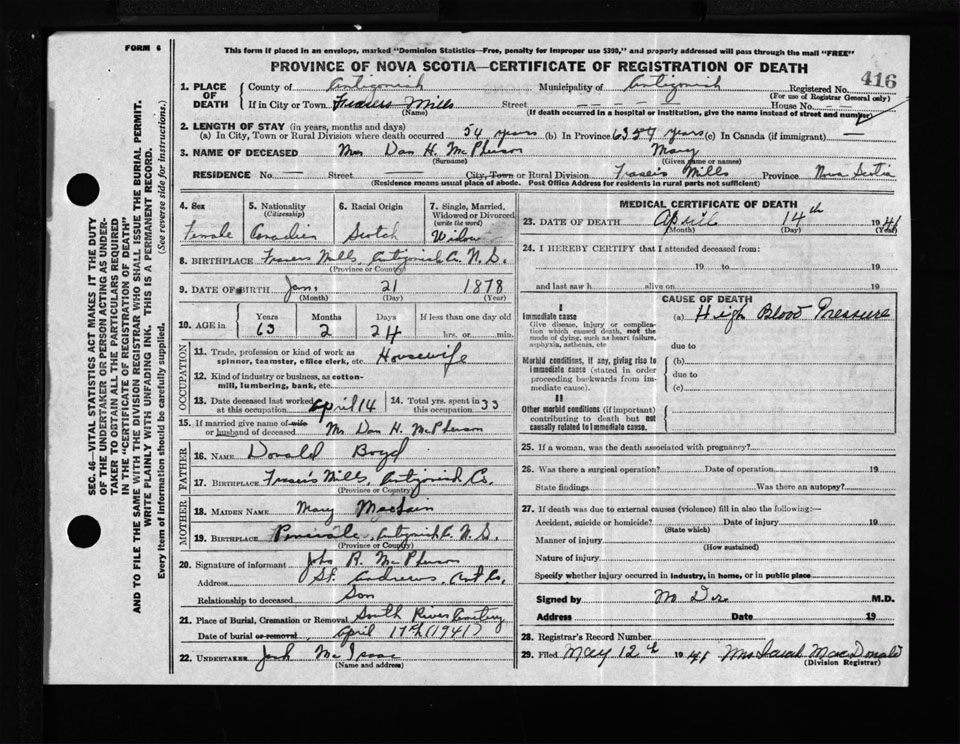 FORM 6
This form if placed in an envelope, marked "Dominion Statistics—Free, penalty for improper use $300," and properly addressed will pass through the mail "FREE"
PROVINCE OF NOVA SCOTIA—CERTIFICATE OF REGISTRATION OF DEATH
416
1. PLACE OF DEATH
County of Antigonish Municipality of Antigonish Registered No.
(For use of Registrar General only)
If in City or Town Frasers Mills Street — — — — House No. — —
(Name) (If death occurred in a hospital or institution, give the name instead of street and number)
2. LENGTH OF STAY (in years, months and days)
(a) In City, Town or Rural Division where death occurred 54 years (b) In Province years (c) In Canada (if immigrant) —
3. NAME OF DECEASED Mrs Dan H. McPherson Mary
(Surname) (Given name or names)
RESIDENCE No. — Street — City, Town or Rural Division Frasers Mills Province Nova Scotia
(Residence means usual place of abode. Post Office Address for residents in rural parts not sufficient)
4. Sex
Female
5. Nationality
(Citizenship)
Canadian
6. Racial Origin
Scotch
7. Single, Married, Widowed or Divorced
(write the word)
Widow
8. BIRTHPLACE Frasers Mills, Antigonish Co. N.S.
(Province or Country)
9. DATE OF BIRTH Jan. 21 1878
(Month) (Day) (Year)
10. AGE in
Years Months Days If less than one day old
63 2 24 hrs. or min.
OCCUPATION
11. Trade, profession or kind of work as spinner, teamster, office clerk, etc. Housewife
12. Kind of industry or business, as cotton-mill, lumbering, bank, etc.
13. Date deceased last worked at this occupation April 14
14. Total yrs. spent in this occupation 33
15. If married give name of wife or husband of deceased Mr Dan H. McPherson
FATHER
16. NAME Donald Boyd
17. BIRTHPLACE Frasers Mills, Antigonish Co.
(Province or Country)
MOTHER
18. MAIDEN NAME Mary
19. BIRTHPLACE Antigonish Co. N.S.
(Province or Country)
20. Signature of informant John R. McPherson
Address St. Andrews, Ant Co,
Relationship to deceased Son
21. Place of Burial, Cremation or Removal South River Cemetery
Date of burial or removal April 17th (1941)
22. UNDERTAKER McIsaac
(Name and address)
MEDICAL CERTIFICATE OF DEATH
23. DATE OF DEATH April 14th 1941
(Month) (Day) (Year)
24. I HEREBY CERTIFY that I attended deceased from:
19 to 19
and last saw h alive on 19
CAUSE OF DEATH
I
Immediate cause
Give disease, injury or complication which caused death, not the mode of dying, such as heart failure, asphyxia, asthenia, etc
(a) High Blood Pressure
due to
Morbid conditions, if any, giving rise to immediate cause (stated in order proceeding backwards from immediate cause).
(b)
due to
(c)
II
Other morbid conditions (if important) contributing to death but not causally related to immediate cause.
25. If a woman, was the death associated with pregnancy?
26. Was there a surgical operation? Date of operation 19
State findings Was there an autopsy?
27. If death was due to external causes (violence) fill in also the following:—
Accident, suicide or homicide? Date of injury 19
(State which)
Manner of injury
(How sustained)
Nature of injury
Specify whether injury occurred in industry, in home, or in public place
Signed by No Dr. M.D.
Address Date 19
28. Registrar's Record Number
29. Filed May 12th 1941 Mrs Sarah MacDonald
(Division Registrar)
SEC. 46—VITAL STATISTICS ACT MAKES IT THE DUTY
OF THE UNDERTAKER OR PERSON ACTING AS UNDER-
TAKER TO OBTAIN ALL THE PARTICULARS REQUIRED
IN THE "CERTIFICATE OF REGISTRATION OF DEATH"
AND TO FILE THE SAME WITH THE DIVISION REGISTRAR WHO SHALL ISSUE THE BURIAL PERMIT.
WRITE PLAINLY WITH UNFADING INK. THIS IS A PERMANENT RECORD.
Every item of information should be carefully supplied. (See reverse side for instructions.)